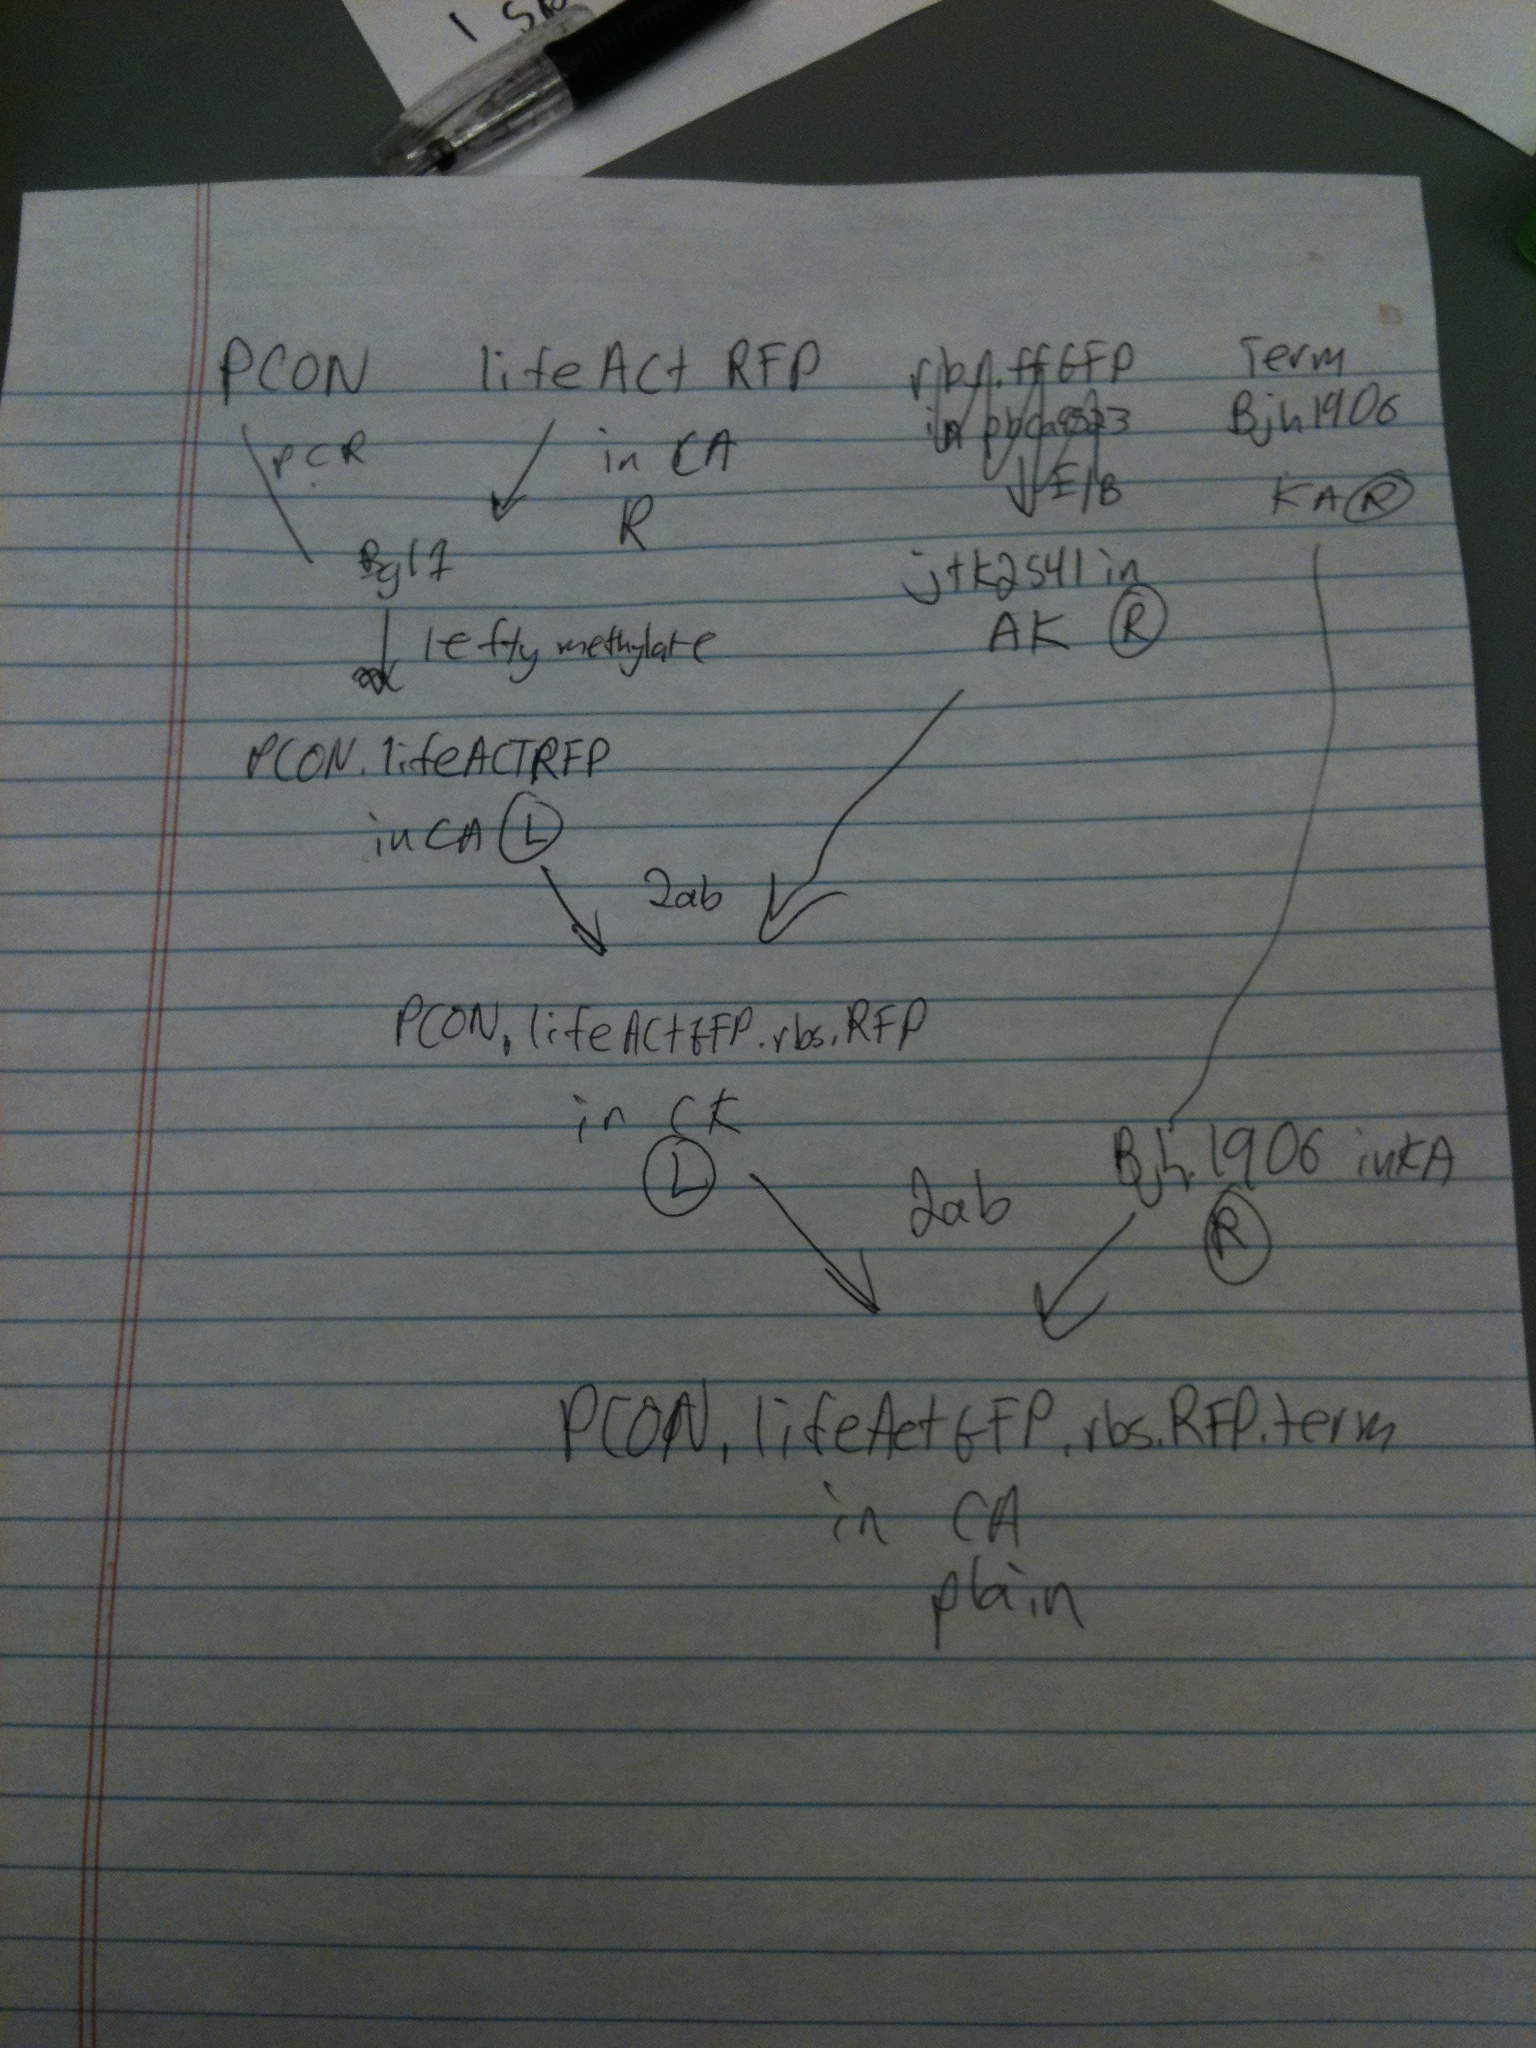 PCON lifeAct RFP Term
Bjh1906
PCR in CA KA R
R E/B
Bgl
jtk2541 in
AK R
lefty methylate
PCON.lifeACTRFP
in CA L
2ab
PCON.lifeActGFP.rbs.RFP
in CK
L
Bjh1906 in KA
2ab
R
PCON.lifeActGFP.rbs.RFP.term
in CA
plain